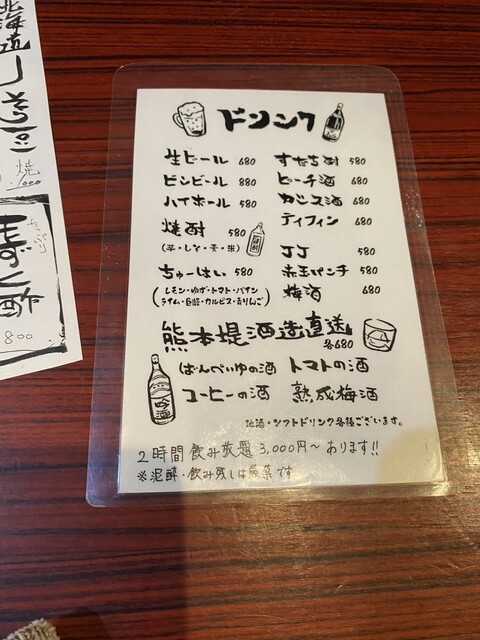 北海道
焼
1,000
酢
800
ドリンク
生ビール 680
ビンビール 880
ハイボール 580
焼酎 580
(芋・しそ・麦・米)
ちゅーはい 580
(レモン・ゆず・トマト・パイン
ライム・巨峰・カルピス・青りんご)
すだち酎 580
ピーチ酒 680
カシス酒 680
ティフィン 680
JJ 580
赤玉パンチ 580
梅酒 680
熊本堤酒造直送
各680
ばんぺいゆの酒 トマトの酒
コーヒーの酒 熟成梅酒
吟酒
地酒・ソフトドリンク各種ございます。
2時間飲み放題 3,000円～あります!!
※泥酔・飲み残しは厳禁です